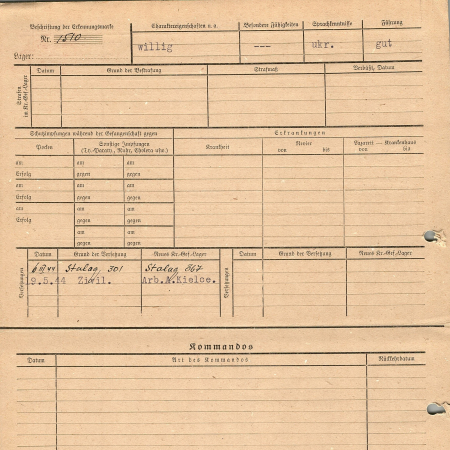 Beschriftung der Erkennungsmarke
Nr. 1510
Lager:
Charaktereigenschaften u. a.
willig
Besondere Fähigkeiten
---
Sprachkenntnisse
ukr.
Führung
gut
Strafen
in Kr.-Gef.-Lager
Datum
Grund der Bestrafung
Strafmaß
Verbüßt, Datum
Schutzimpfungen während der Gefangenschaft gegen
Erkrankungen
Pocken
Sonstige Impfungen
(Ty.-Paraty., Ruhr, Cholera usw.)
Krankheit
Revier
von bis
Lazarett — Krankenhaus
von bis
am am am
Erfolg gegen gegen
am am am
Erfolg gegen gegen
am am am
Erfolg gegen gegen
am am
gegen gegen
am am
gegen gegen
Versetzungen
Datum Grund der Versetzung Neues Kr.-Gef.-Lager
6 III 44 Stalag 301 Stalag 367
9.5.44 Zivil. Arb.A.Kielce.
Versetzungen
Datum Grund der Versetzung Neues Kr.-Gef.-Lager
Kommandos
Datum Art des Kommandos Rückkehrdatum